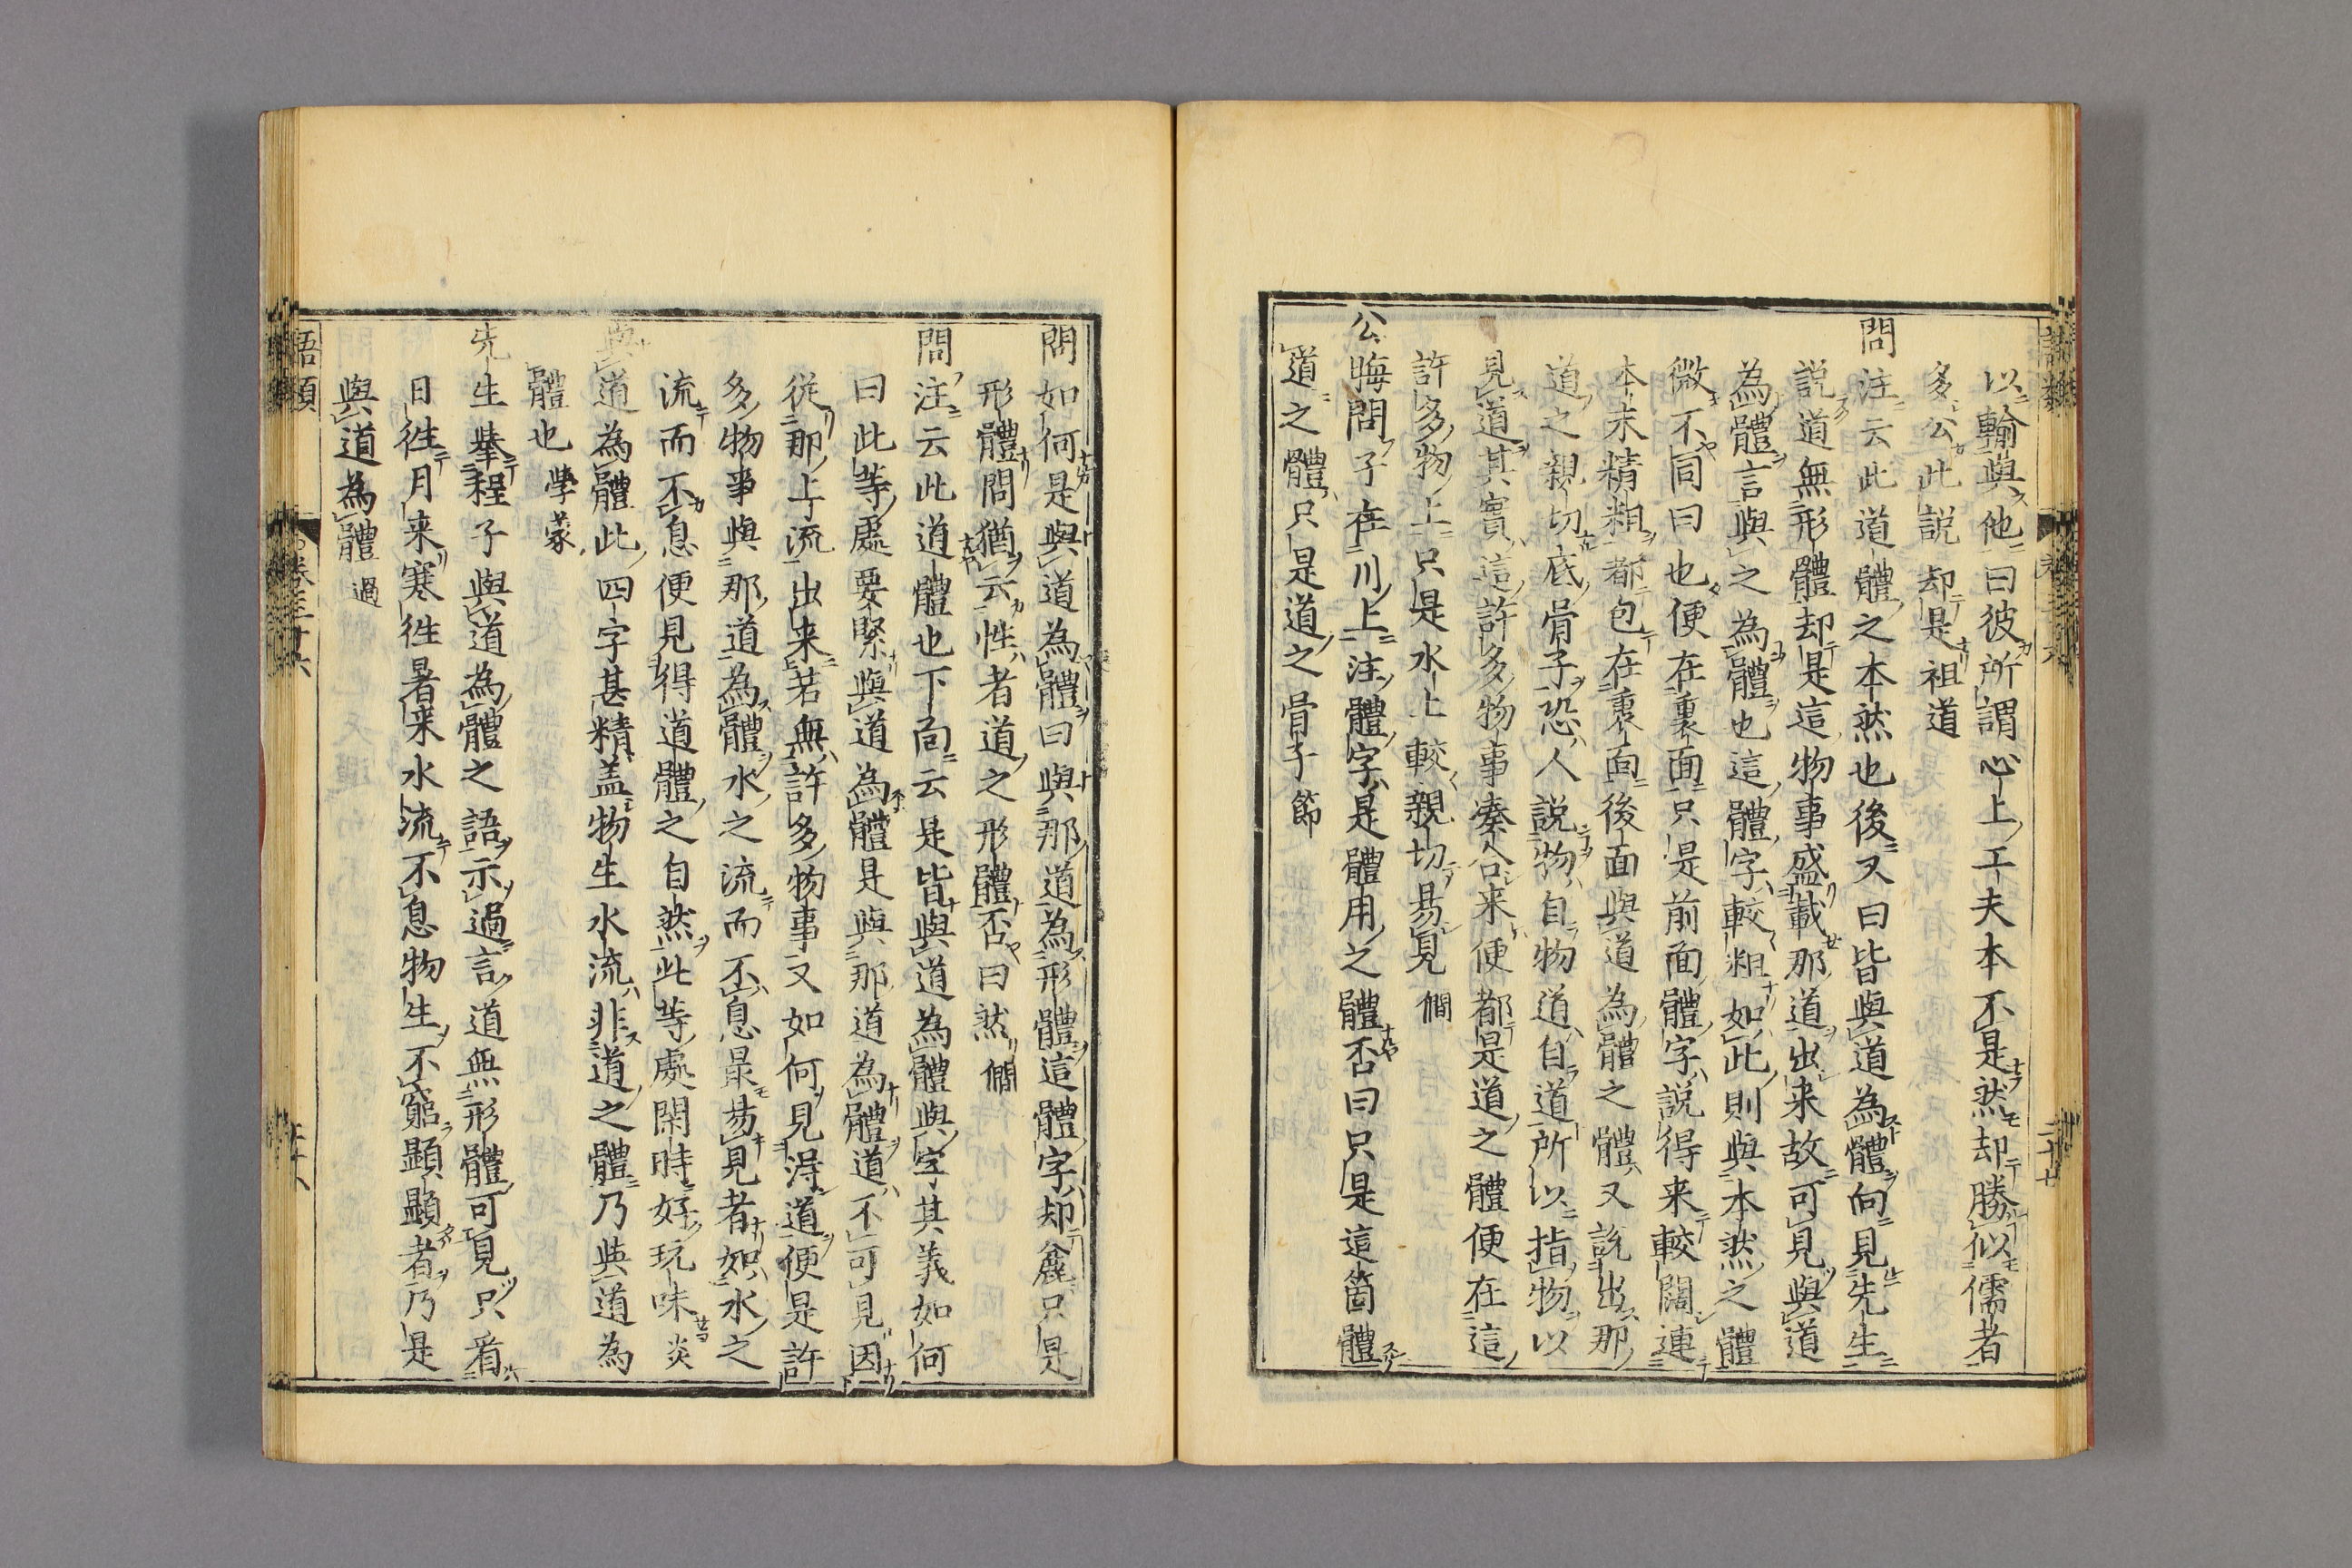 以輸與他曰彼所謂心上工夫本不是然却勝似儒者
多公此説却是祖道
問注云此道體之本然也後又曰皆與道為體向見先生
説道無形體却是這物事盛載那道出来故可見與道
為體言與之為體也這體字較粗如此則與本然之體
微不同曰也便在裏面只是前面體字説得来較闊連
本末精粗都包在裏面後面與道為體之體又説出那
道之親切底骨子恐人説物自物道自道所以指物以
見道其實這許多物事湊合来便都是道之體便在這
許多物上只是水上較親切易見僩
公晦問子在川上注體字是體用之體否曰只是這箇體
道之體只是道之骨子節
問如何是與道為體曰與那道為形體這體字却麄只是
形體問猶云性者道之形體否曰然僩
問注云此道體也下面云是皆與道為體與字其義如何
曰此等處要緊與道為體是與那道為體道不可見因
從那上流出来若無許多物事又如何見得道便是許
多物事與那道為體水之流而不息最昜見者如水之
流而不息便見得道體之自然此等處閑時好玩味炎
與道為體此四字甚精盖物生水流非道之體乃與道為
體也學蒙
先生舉程子與道為體之語示過言道無形體可見只看
日徃月来寒徃暑来水流不息物生不窮顯顯者乃是
與道為體過
語類
卷三十六